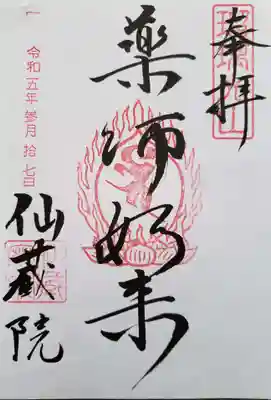 奉拝
薬師如来
仙蔵院
令和五年参月拾七日